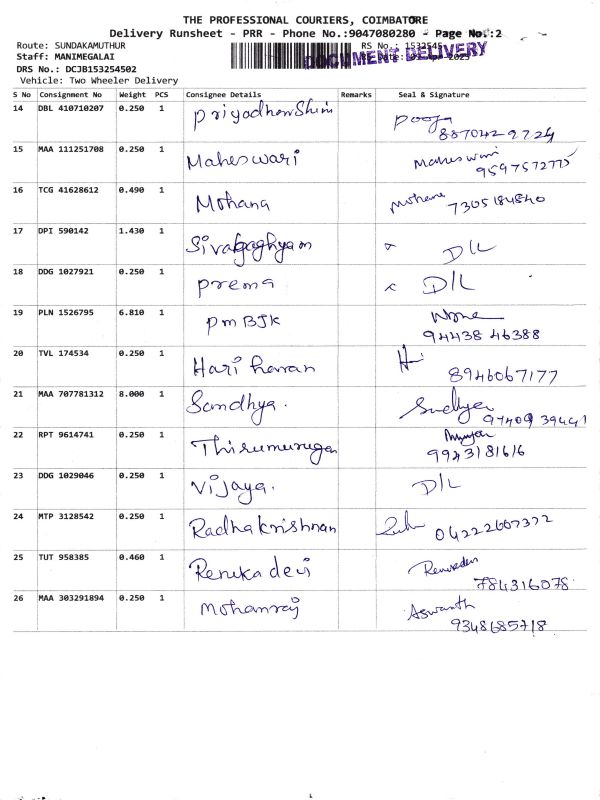 THE PROFESSIONAL COURIERS, COIMBATORE
Delivery Runsheet - PRR - Phone No.:9047080280 - Page No.:2
Route: SUNDAKAMUTHUR
RS No.: 1532545
Staff: MANIMEGALAI
DOCUMENT DELIVERY
DRS No.: DCJB153254502
Vehicle: Two Wheeler Delivery
S No Consignment No Weight PCS Consignee Details Remarks Seal & Signature
14 DBL 410710207 0.250 1 priyadharshini pooja
8870429724
15 MAA 111251708 0.250 1 Maheswari Maheswari
9597572775
16 TCG 41628612 0.490 1 Mohana Mohana 7305184840
17 DPI 590142 1.430 1 D/L
18 DDG 1027921 0.250 1 prema D/L
19 PLN 1526795 6.810 1 pm BJK
94438 46388
20 TVL 174534 0.250 1 Hari haran
8946067177
21 MAA 707781312 8.000 1 Sandhya. Sandhya
97409 39441
22 RPT 9614741 0.250 1 Thirumurugan
9943181616
23 DDG 1029046 0.250 1 Vijaya. D/L
24 MTP 3128542 0.250 1 Radhakrishnan 04222607372
25 TUT 958385 0.460 1 Renuka devi
784316078
26 MAA 303291894 0.250 1 Mohanraj Aswanth
9348685718